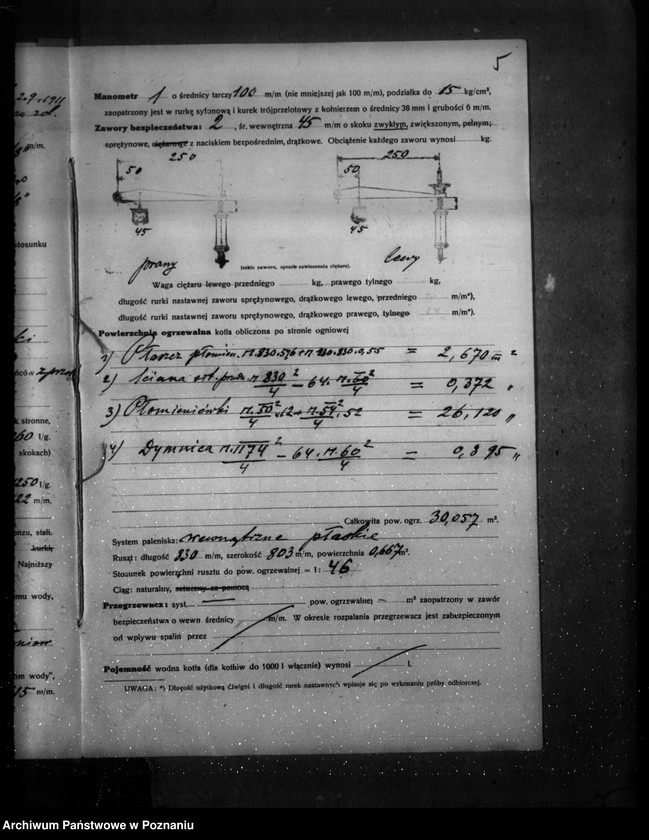 5
Manometr 1 o średnicy tarczy 100 m/m (nie mniejszej jak 100 m/m), podziałka do 15 kg/cm²,
zaopatrzony jest w rurkę syfonową i kurek trójprzelotowy z kołnierzem o średnicy 38 mm i grubości 6 m/m.
Zawory bezpieczeństwa: 2, śr. wewnętrzna 45 m/m o skoku zwykłym, zwiększonym, pełnym;
sprężynowe, ciężarowe z naciskiem bezpośrednim, drążkowe. Obciążenie każdego zaworu wynosi kg.
250 250
50 50
45 45
prawy (szkic zaworu, sposób zawieszenia ciężaru). lewy
Waga ciężaru lewego przedniego kg, prawego tylnego kg,
długość rurki nastawnej zaworu sprężynowego, drążkowego lewego, przedniego m/m*),
długość rurki nastawnej zaworu sprężynowego, drążkowego prawego, tylnego m/m*).
Powierzchnia ogrzewalna kotła obliczona po stronie ogniowej
1) Płaszcz płomien. = 2,670 m²
2) ściana = 0,372 "
3) Płomieniówki = 26,120 "
4) Dymnica = 0,895 "
Całkowita pow. ogrz. 30,057 m².
System paleniska: wewnętrzne płaskie
Ruszt: długość 830 m/m, szerokość 803 m/m, powierzchnia 0,667 m².
Stosunek powierzchni rusztu do pow. ogrzewalnej = 1: 46
Ciąg: naturalny, sztuczny za pomocą
Przegrzewacz: syst. — pow. ogrzewalnej — m² zaopatrzony w zawór
bezpieczeństwa o wewn. średnicy m/m. W okresie rozpalania przegrzewacz jest zabezpieczonym
od wpływu spalin przez
Pojemność wodna kotła (dla kotłów do 1000 l włącznie) wynosi l.
UWAGA: *) Długość użytkową dźwigni i długość rurek nastawnych wpisuje się po wykonaniu próby odbiorczej.
Archiwum Państwowe w Poznaniu